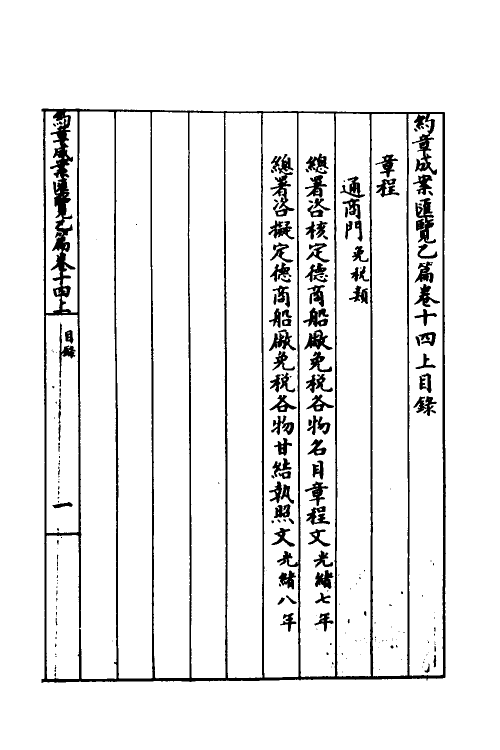 約章成案匯覽乙篇卷十四上目錄
章程
通商門免稅類
總署咨核定德商船廠免稅各物名目章程文光緒七年
總署咨擬定德商船廠免稅各物甘結執照文光緒八年
約章成案匯覽乙篇卷十四上
目錄
一